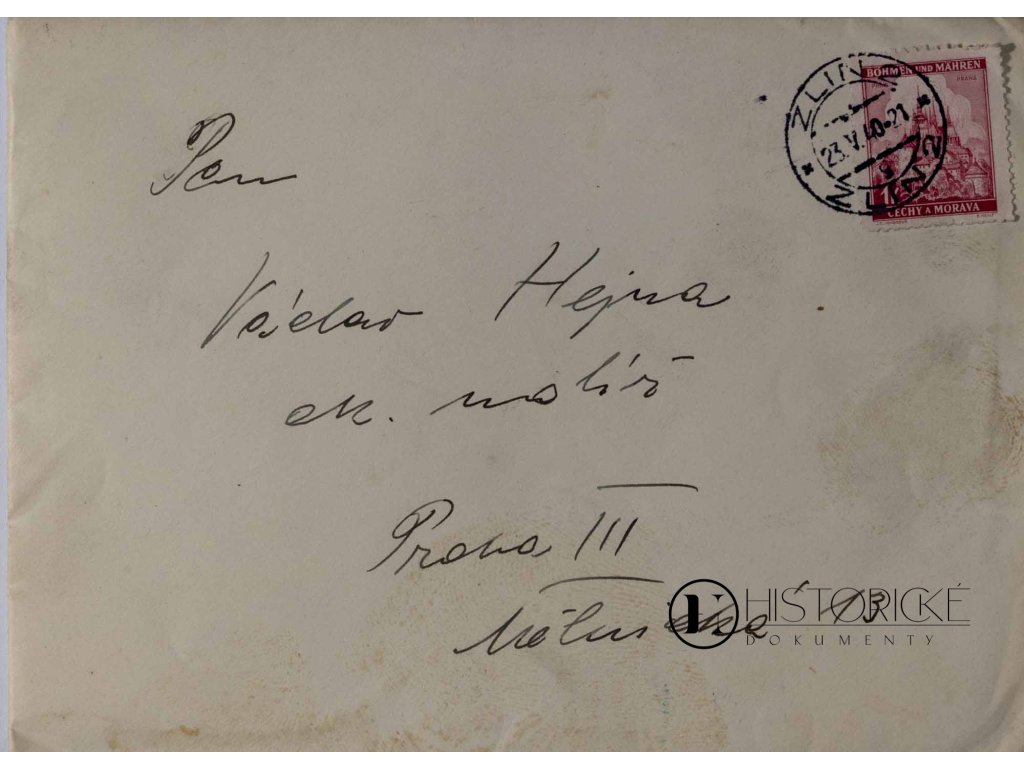 BÖHMEN UND MÄHREN
PRAHA
ZLÍN 2
23.V.40-21
ZLIN 2
ČECHY A MORAVA
Pan
Václav Hejna
ak. malíř
Praha III
Mělnická 13
HISTORICKÉ
DOKUMENTY